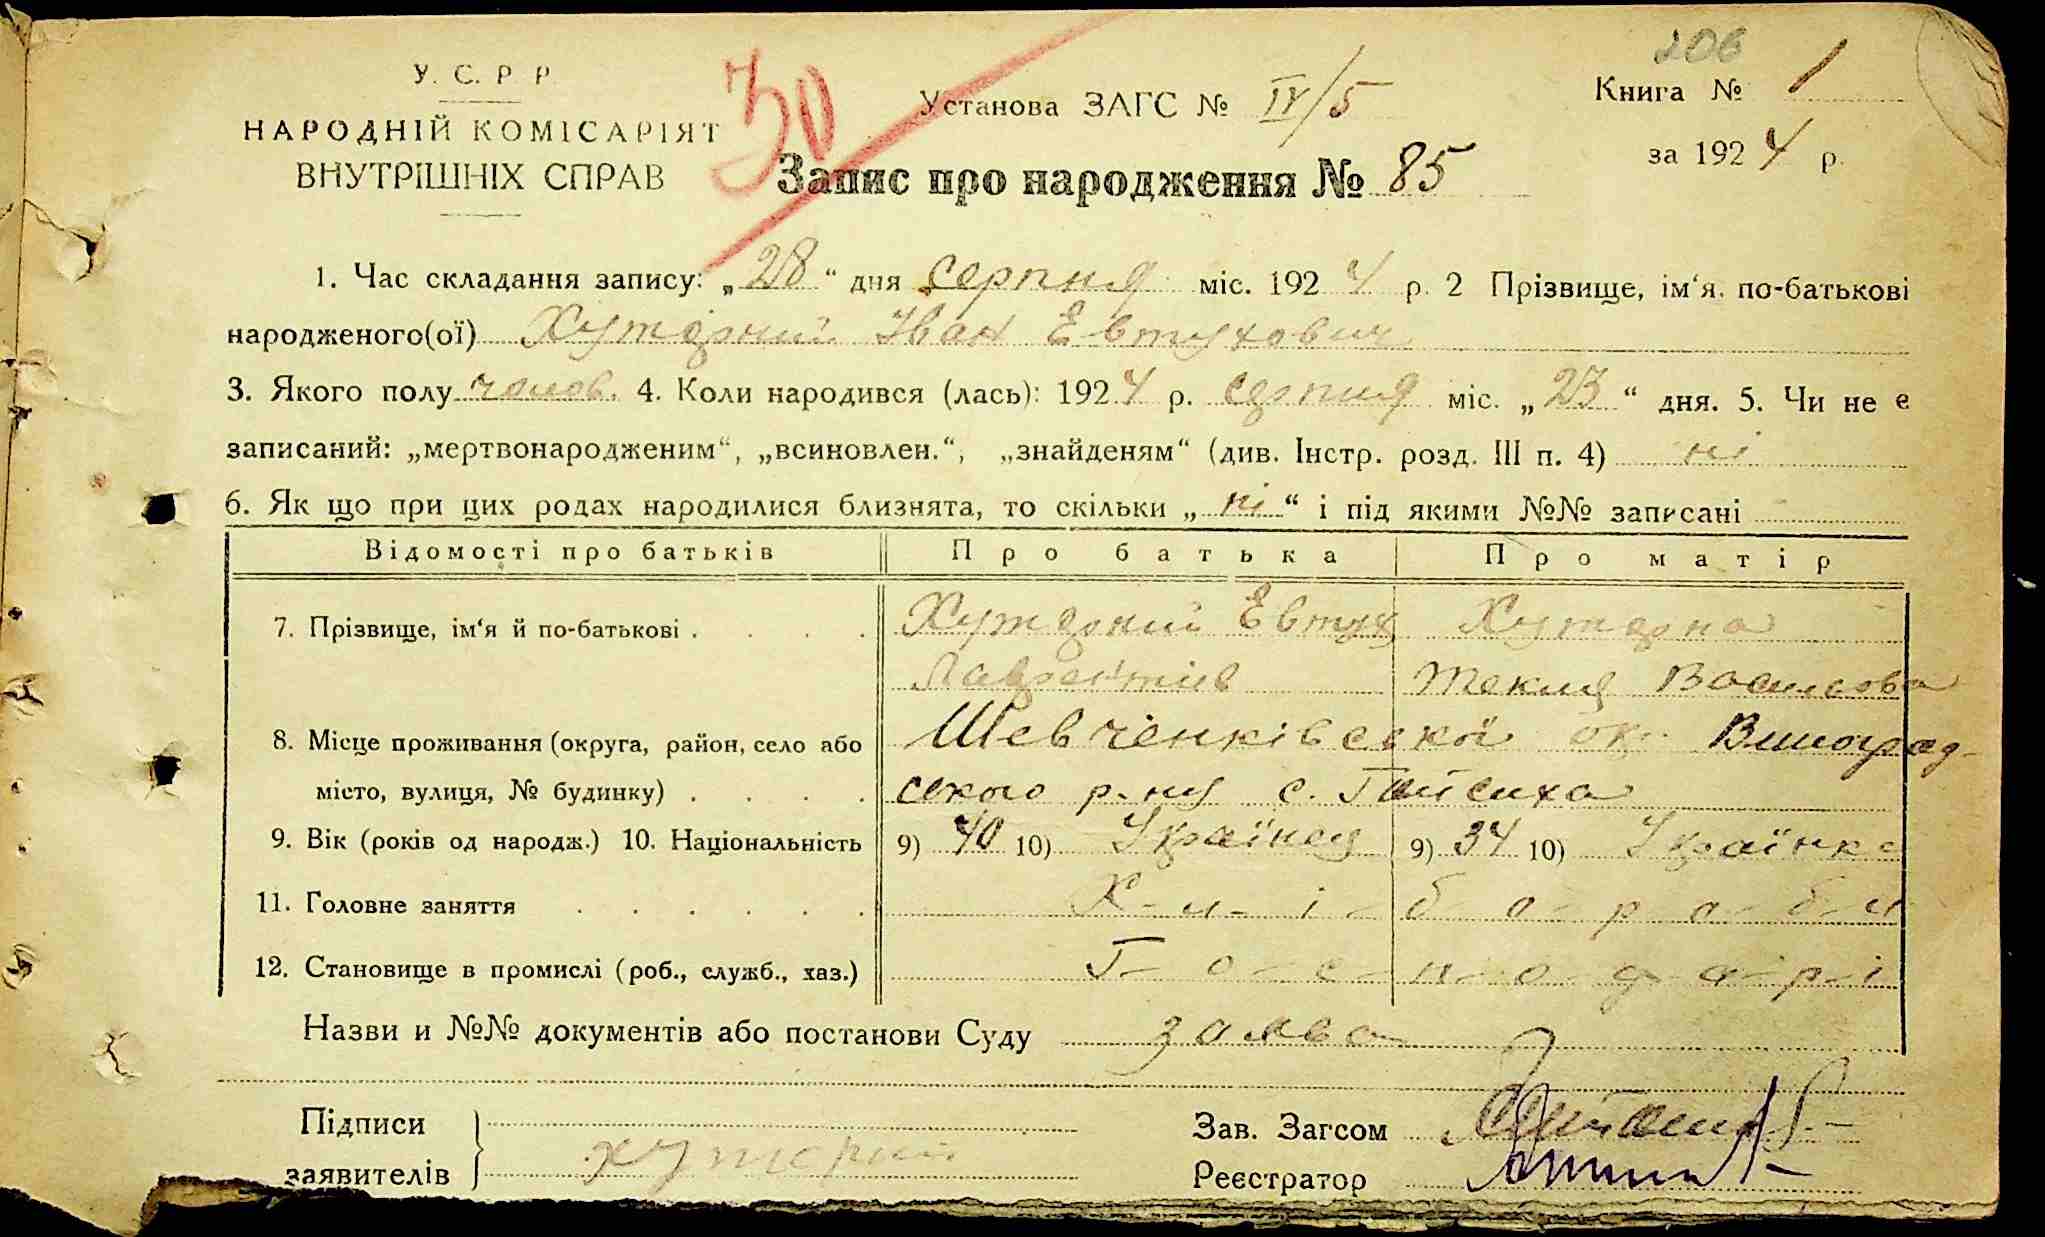 206
У. С. Р Р
НАРОДНІЙ КОМІСАРІЯТ
ВНУТРІШНІХ СПРАВ
30
Установа ЗАГС № IV/5
Книга № 1
за 1924 р.
Запис про народження № 85
1. Час складання запису: „28“ дня серпня міс. 1924 р. 2 Прізвище, ім‘я, по-батькові
народженого(ої) Хуторний Іван Евтухович
3. Якого полу чолов. 4. Коли народився (лась): 1924 р. серпня міс. „23“ дня. 5. Чи не є
записаний: „мертвонародженим“, „всиновлен.“, „знайденям“ (див. Інстр. розд. III п. 4) ні
6. Як що при цих родах народилися близнята, то скільки „ні“ і під якими №№ записані
Відомості про батьків Про батька Про матір
7. Прізвище, ім‘я й по-батькові . . . . Хуторний Евтух Хуторна
Лаврентіев Текля Васильова
8. Місце проживання (округа, район, село або Шевченківської ок. Виноград-
місто, вулиця, № будинку) . . . . ського р-ну с.
9. Вік (років од народж.) 10. Національність 9) 40 10) Українец 9) 34 10) Українка
11. Головне заняття . . . . . . Х-л-і-б-о-р-о-б-и
12. Становище в промислі (роб., служб., хаз.) Г-о-с-п-о-д-а-р-і
Назви и №№ документів або постанови Суду заява
Підписи
заявителів } хуторний
Зав. Загсом
Реєстратор